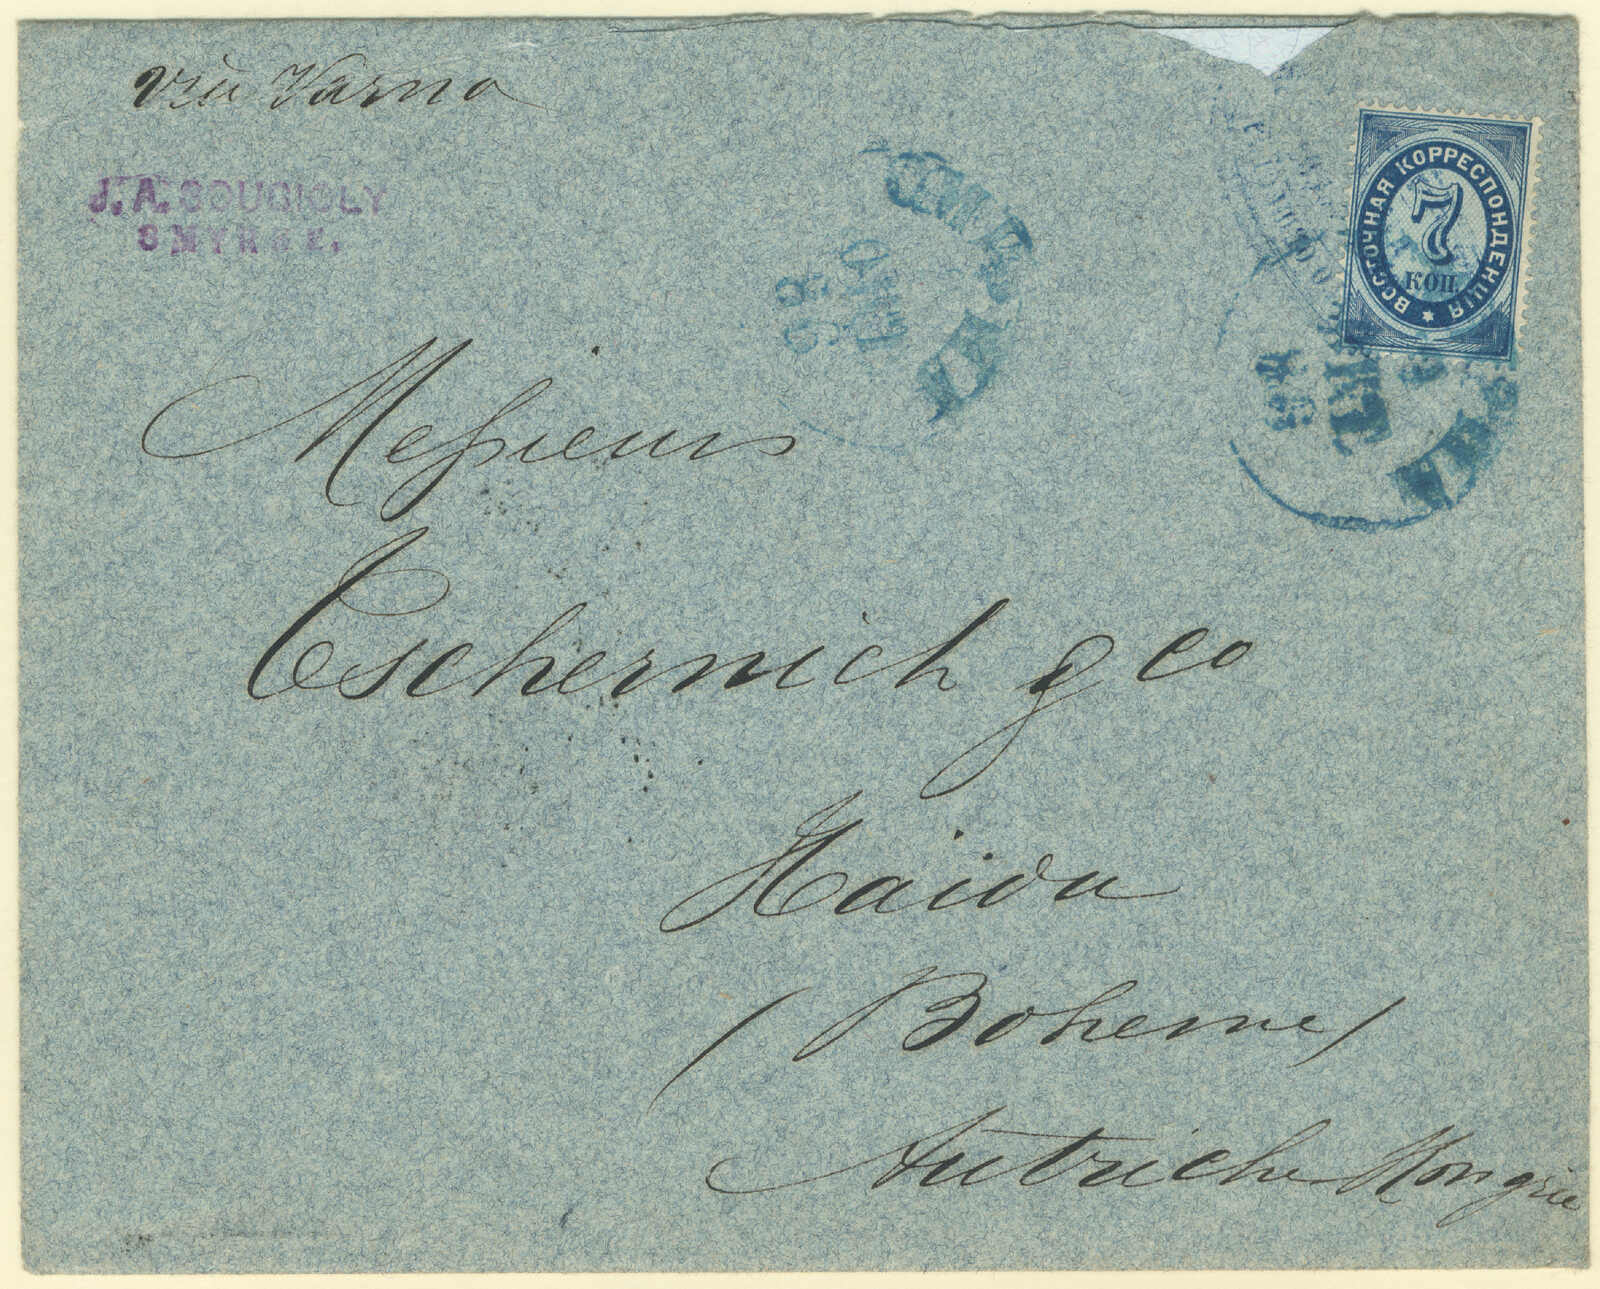 via Varna
J. A. COUGIOLY
SMYRNE.
ВОСТОЧНАЯ КОРРЕСПОНДЕНЦІЯ
7
КОП.
Messieurs
Tschernich & co
Haida
(Boheme)
Autriche Hongrie